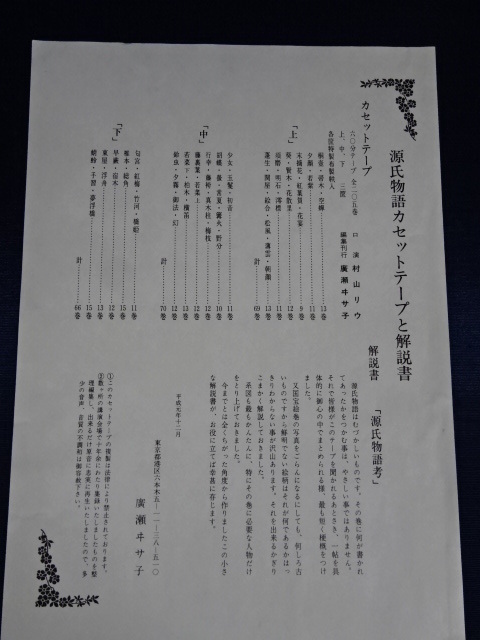 源氏物語カセットテープと解説書
カセットテープ
六〇分テープ 全二〇五巻
各函特製布製帙入
上、中、下 三函
口演 村山リウ
編集刊行 廣瀬ヰサ子
「上」
桐壺・帚木・空蝉 13巻
夕顔・若紫 11巻
末摘花・紅葉賀・花宴 9巻
葵・賢木・花散里 12巻
須磨・明石・澪標 11巻
蓬生・関屋・絵合・松風・薄雲・朝顔 13巻
計 69巻
「中」
少女・玉鬘・初音 11巻
胡蝶・螢・常夏・篝火・野分 10巻
行幸・藤袴・真木柱・梅枝 12巻
藤裏葉・若菜上 12巻
若菜下・柏木・横笛 13巻
鈴虫・夕霧・御法・幻 12巻
計 70巻
「下」
匂宮・紅梅・竹河・橋姫 11巻
椎本・総角 12巻
早蕨・宿木 15巻
東屋・浮舟 13巻
蜻蛉・手習・夢浮橋 15巻
計 66巻
解説書 「源氏物語考」
源氏物語はむつかしいものです。その巻に何が書かれ
てあったかをつかむ事は、やさしい事ではありません。
それで皆様がこのテープを聞かれるあとさき、一帖を具
体的に御心の中でまとめられる様、最も短く梗概をつけ
ました。
又国宝絵巻の写真をごらんになるにしても、何しろ古
いものですから鮮明でない絵柄はそれが何であるかはっ
きりわからない事が沢山あります。それを出来るかぎり
こまかく解説しておきました。
系図も最もかんたんに、特にその巻に必要な人物だけ
をとり上げておきました。
今までとは全くちがった角度から作りましたこの小さ
な解説書が、お役に立てば幸甚に存じます。
平成元年十二月
東京都港区六本木五―一―三八―五一〇
廣瀬ヰサ子
①このカセットテープの複製は法律により禁止されております。
②数ヶ所の講演会場で十年余にわたり集録いたしましたものを整
理編集し、出来るだけ原音に忠実に再生いたしましたので、多
少の音声、音質の不調和は御容赦下さい。